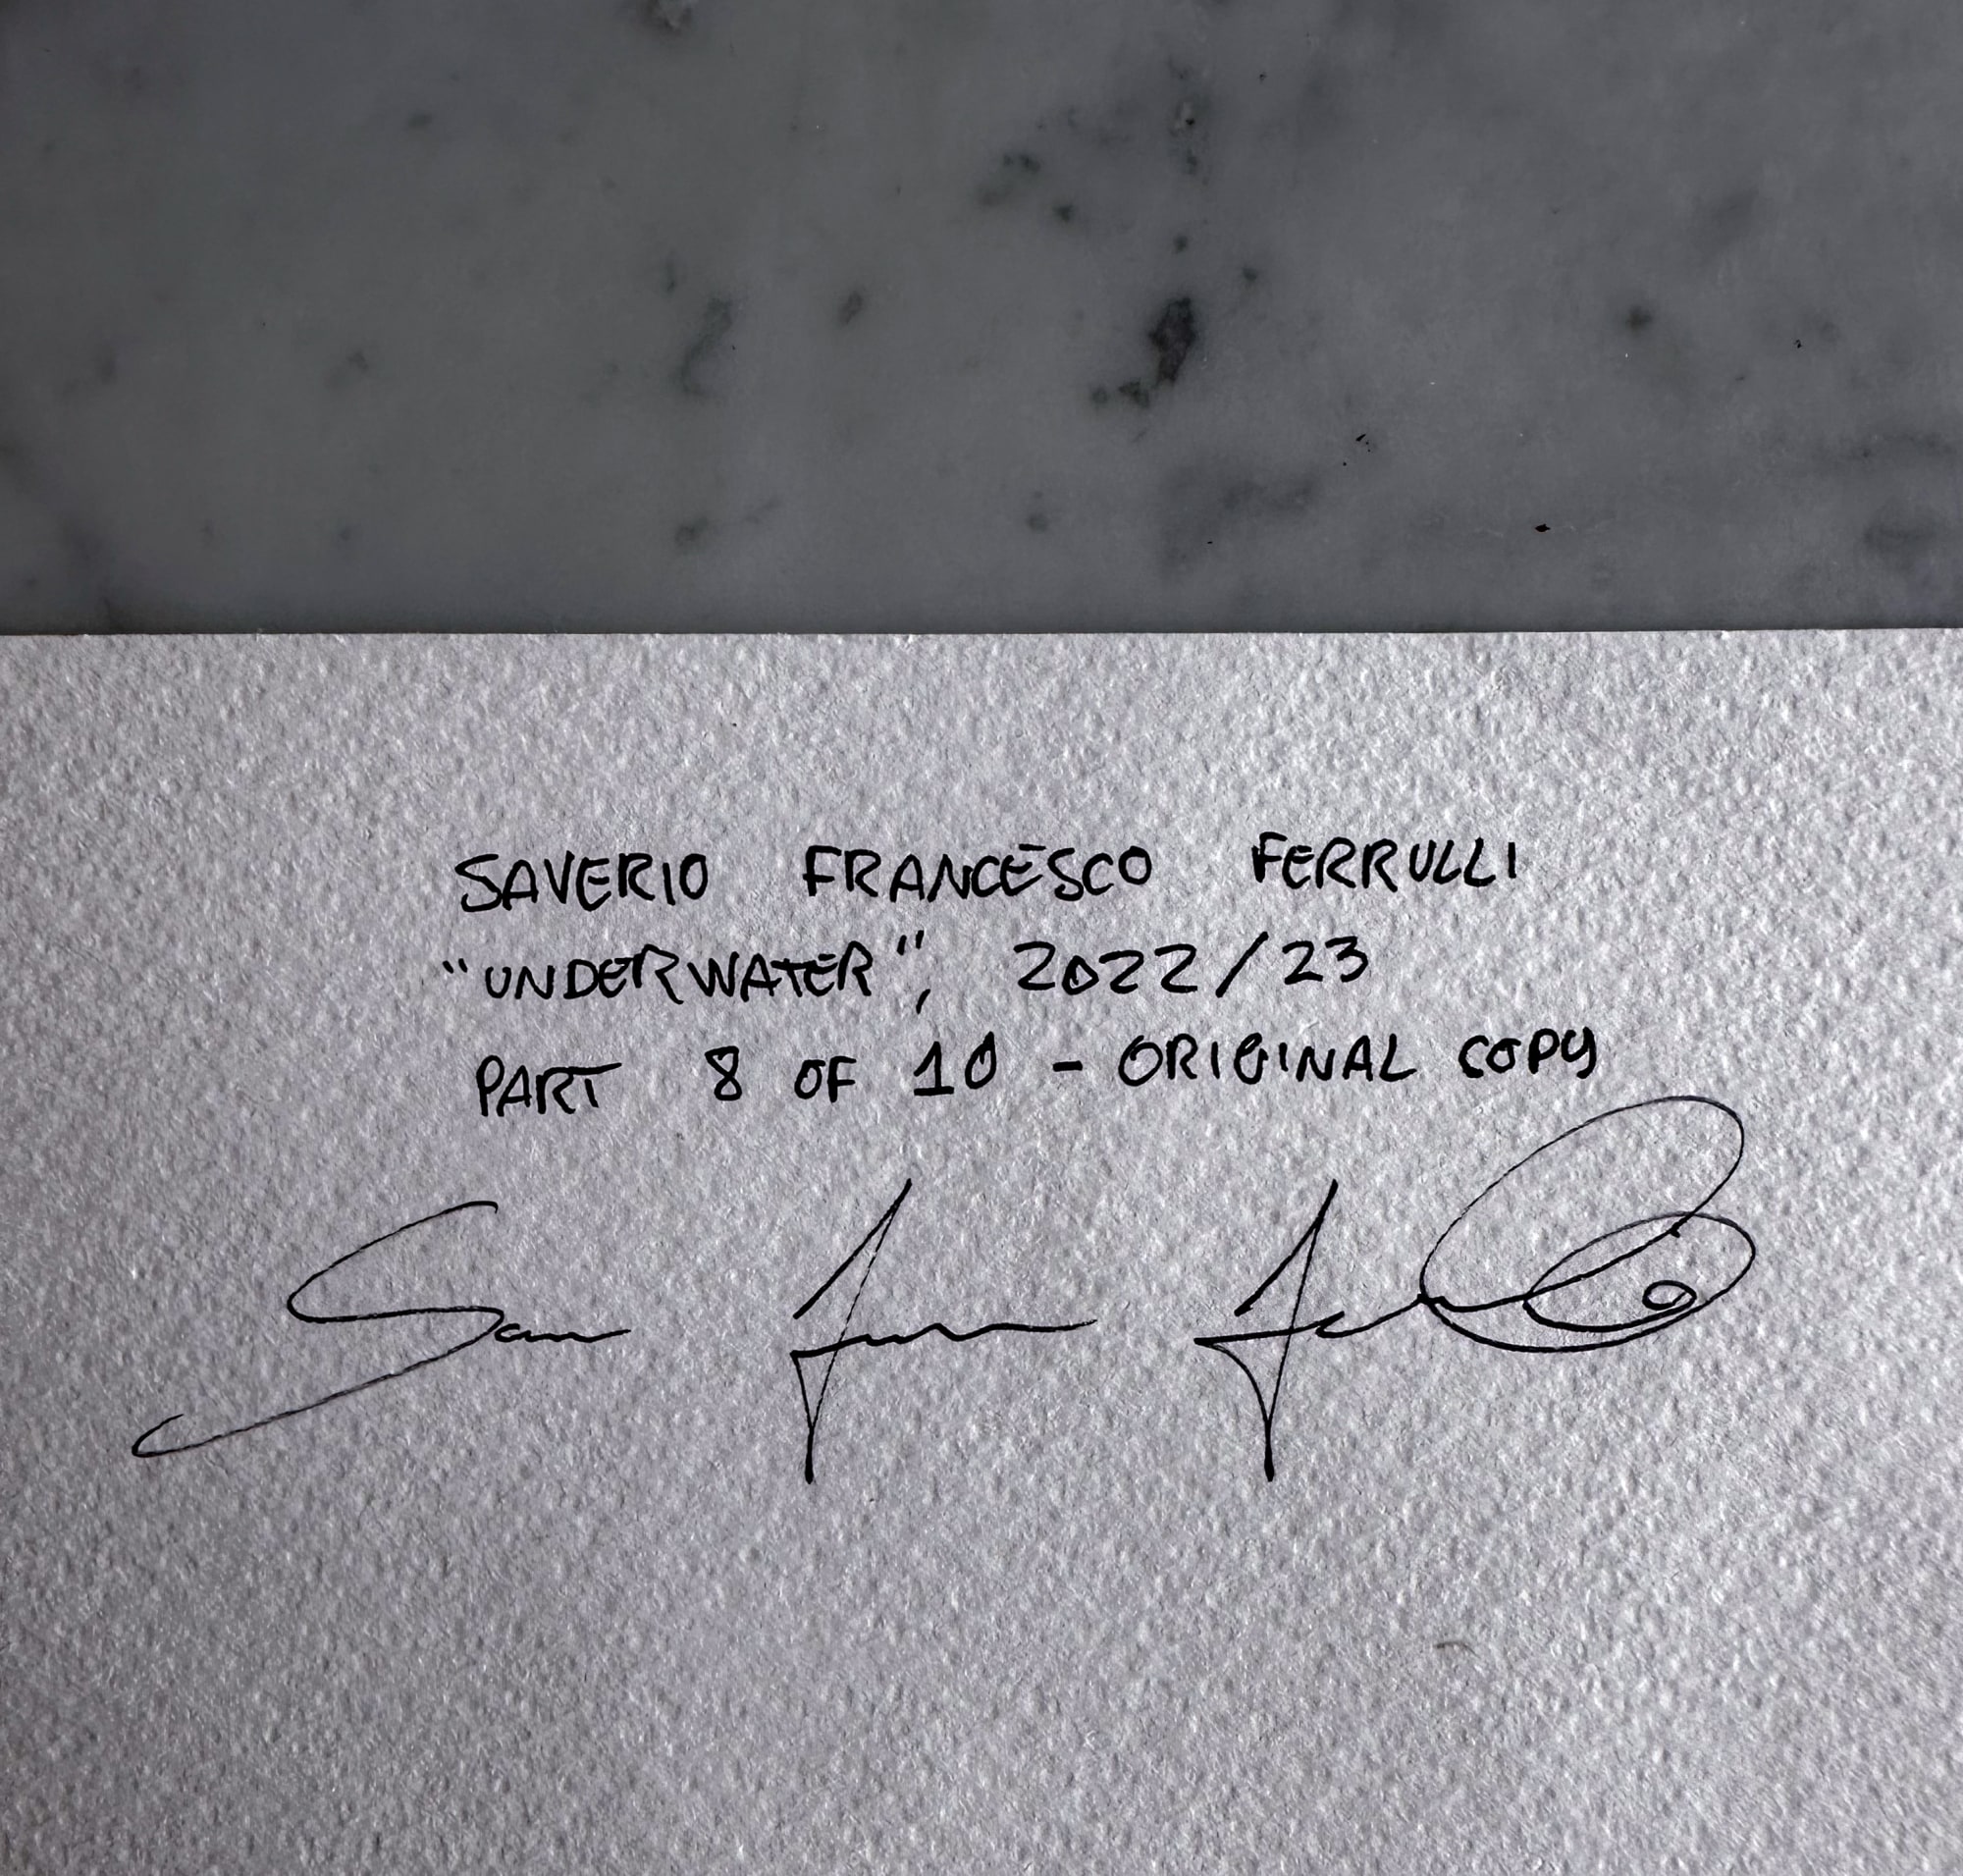 SAVERIO FRANCESCO FERRULLI
"UNDERWATER", 2022/23
PART 8 OF 10 - ORIGINAL COPY